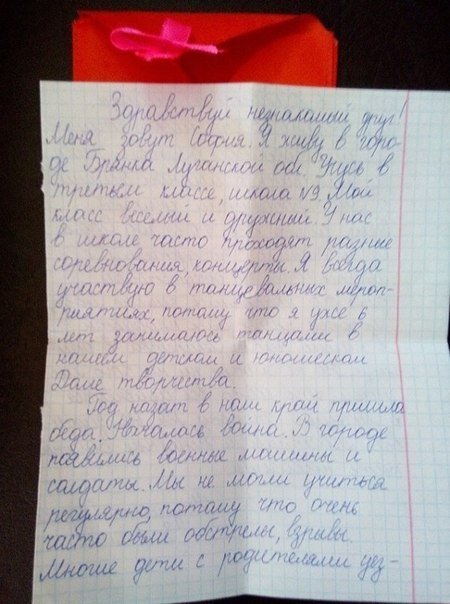 Здравствуй незнакомый друг!
Меня зовут София. Я живу в горо-
де Брянка Луганской обл. Учусь в
третьем классе, школа №9. Мой
класс веселый и дружный. У нас
в школе часто проходят разные
соревнования, концерты. Я всегда
участвую в танцевальных мероп-
риятиях, потому что я уже 6
лет занимаюсь танцами в
нашем детском и юношеском
Доме творчества.
Год назат в наш край пришла
беда. Началась война. В городе
появились военные машины и
солдаты. Мы не могли учиться
регулярно, потому что очень
часто были обстрелы, взрывы.
Многие дети с родителями уез-